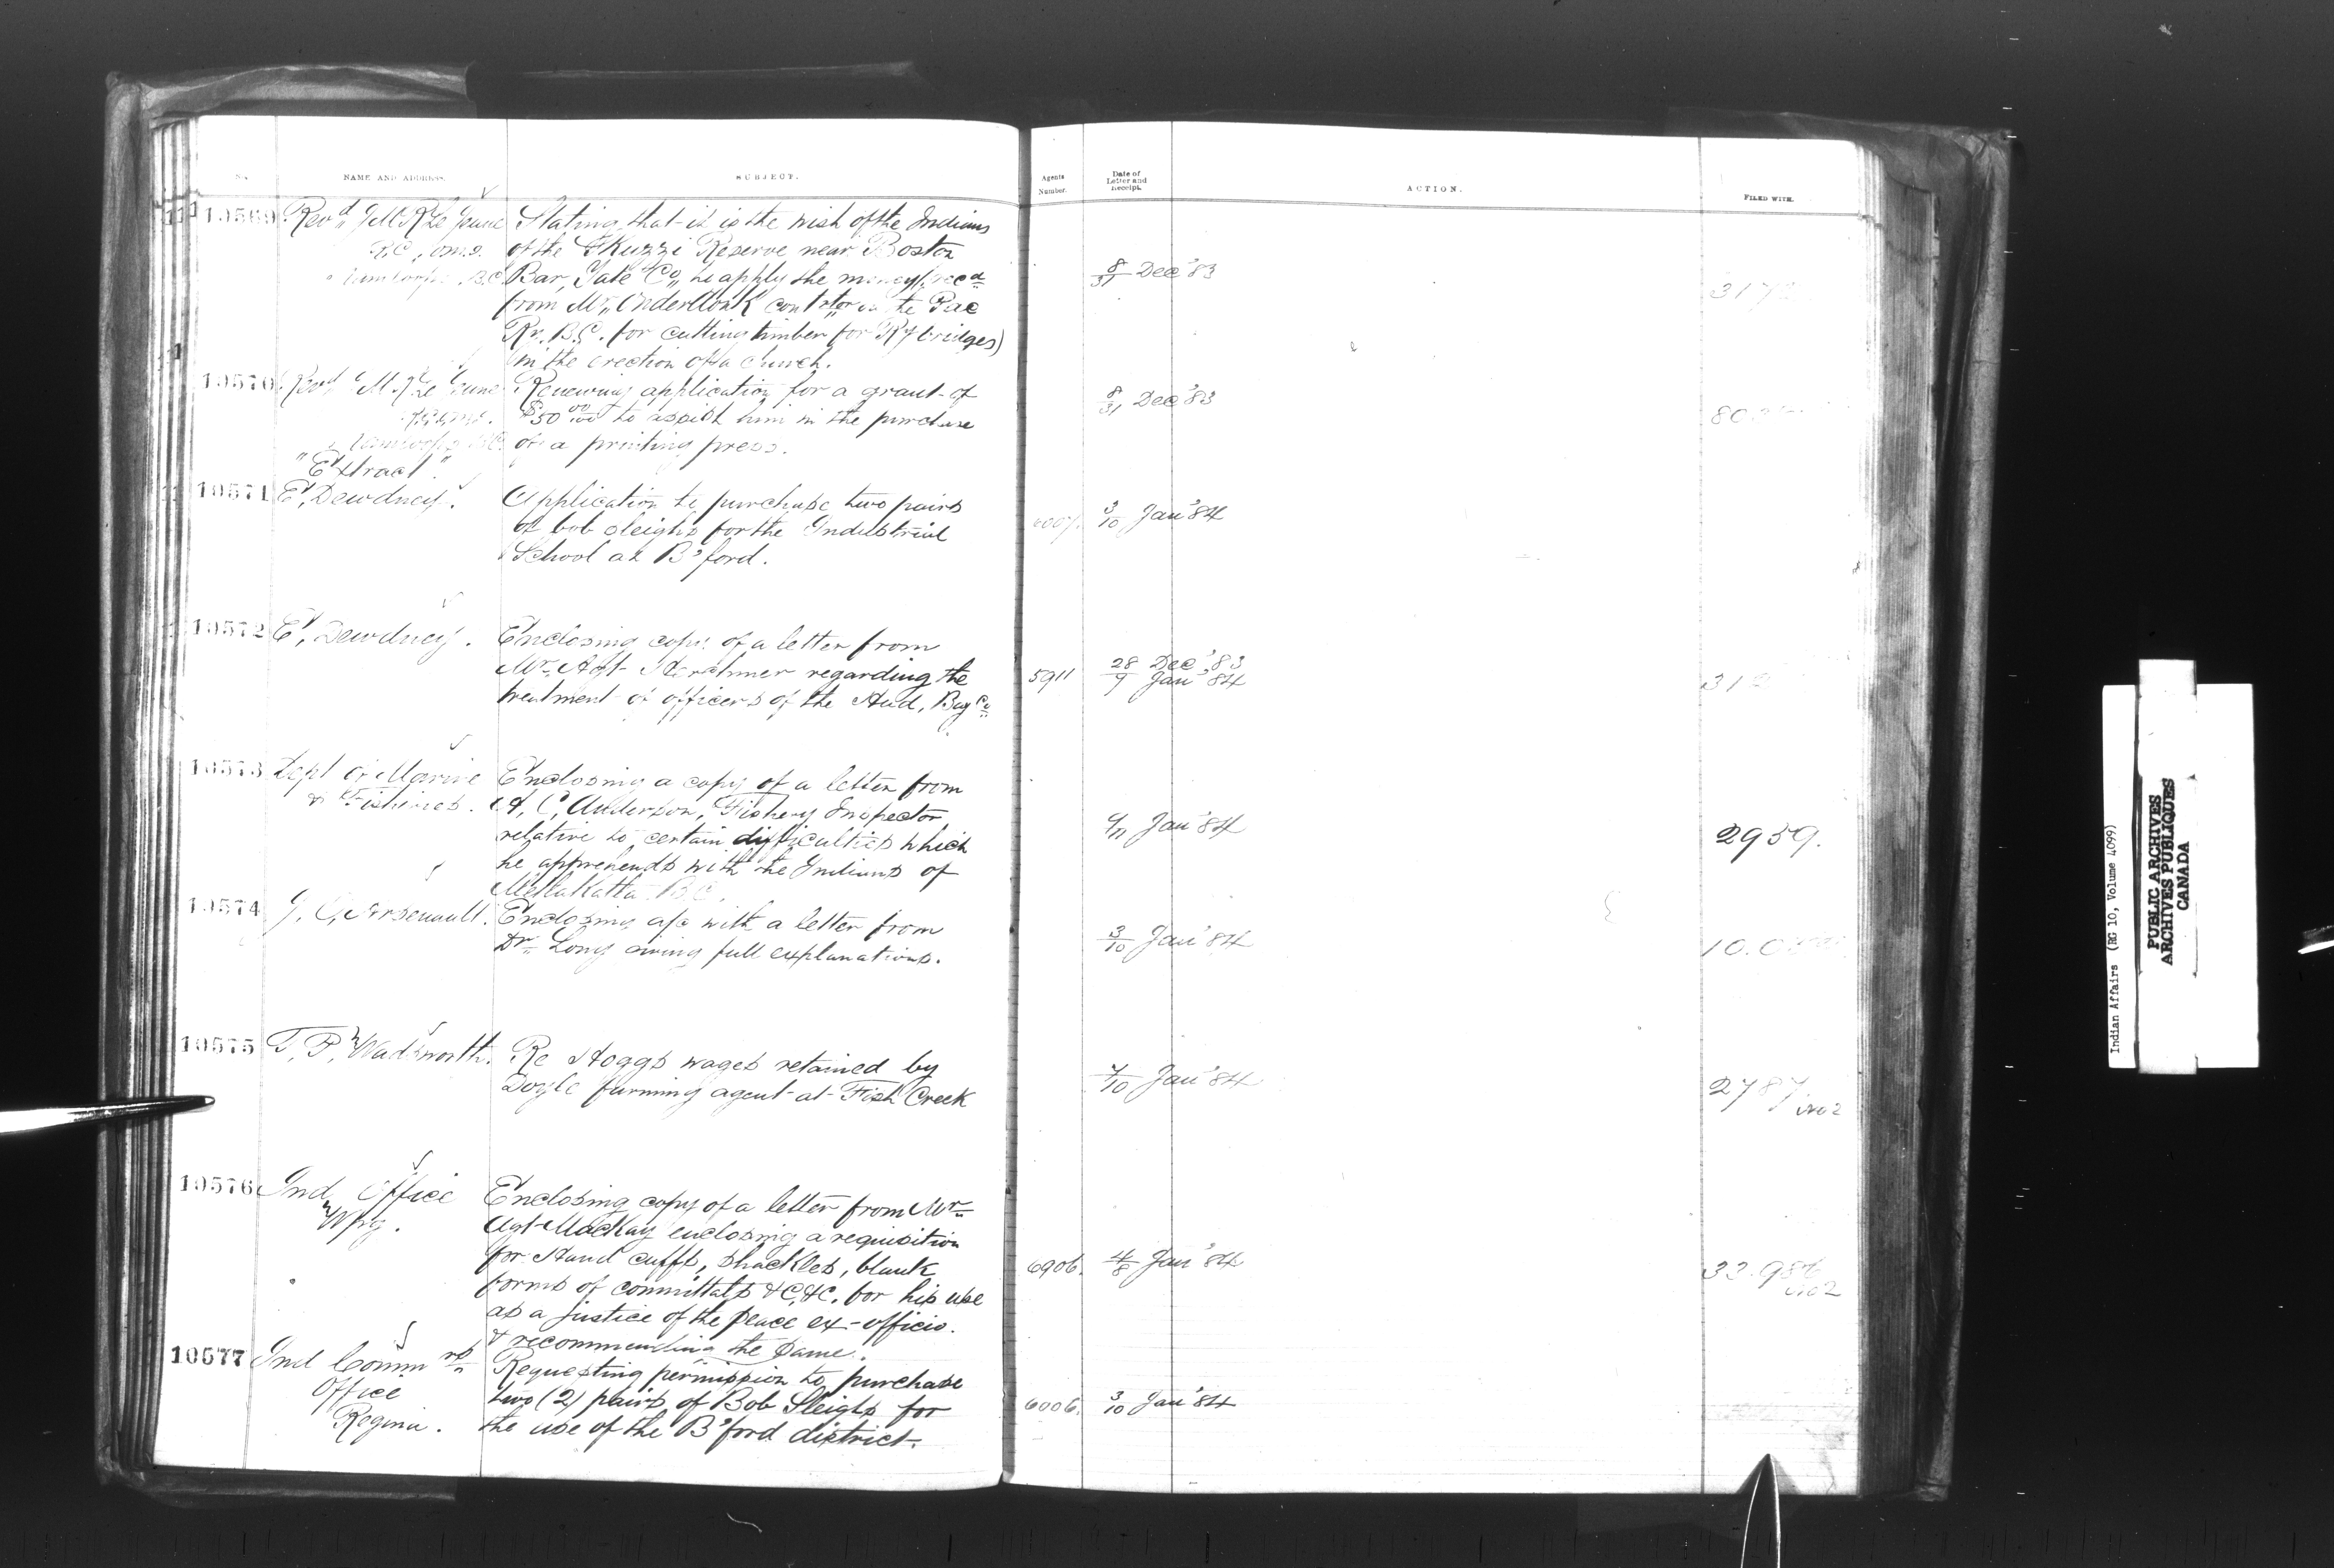 No.
NAME AND ADDRESS.
SUBJECT.
Agents Number.
Date of Letter and Receipt.
ACTION.
FILED WITH.
10569 Revd J M R Le Jeune Stating that it is the wish of the Indians
R.C., O.M.I. of the Skuzzi Reserve near Boston
B.C. Bar, Yale Co, to apply the money (recd 8/31 Dec '83
from Mr Onderdonk contrtor on the Pac
Ry. B.C. for cutting timber for Ry bridges)
in the erection of a church.
10570 Revd Le Jeune Renewing application for a grant of 8/31 Dec '83
$50 00/100 to assist him in the purchase
B.C. of a printing press.
"Extract"
10571 E, Dewdney. Application to purchase two pairs 3/10 Jan '84
of bob sleighs for the Industrial
School at B'ford.
10572 E, Dewdney. Enclosing copy of a letter from 28 Dec '83
Mr Agt Herchmer regarding the 5911 9 Jan '84
treatment of officers of the Hud, Bay Co
10573 Dept of Marine Enclosing a copy of a letter from
& Fisheries. A, C, Anderson, Fishery Inspector Jan '84 2959.
relative to certain difficulties which
he apprehends with the Indians of
Metlakatta B.C.
10574 J, O, Arsenault. Enclosing a/c with a letter from
Dr Long giving full explanations. 3/10 Jan '84
10575 T, P, Wadsworth. Re Hoggs wages retained by
Doyle farming agent at Fish Creek 7/10 Jan '84 2787 No 2
10576 Ind Office Enclosing copy of a letter from Mr
Wpg. Agt MacKay enclosing a requisition
for Hand cuffs, shackles, blank 6906. 4/8 Jan '84
forms of committals &C, &C. for his use No 2
as a justice of the peace ex-officio.
& recommending the same.
10577 Ind Commrs Requesting permission to purchase
Office two (2) pairs of Bob Sleighs for 6006. 3/10 Jan '84
Regina. the use of the B'ford district.
Indian Affairs (RG 10, Volume 4099)
PUBLIC ARCHIVES
ARCHIVES PUBLIQUES
CANADA